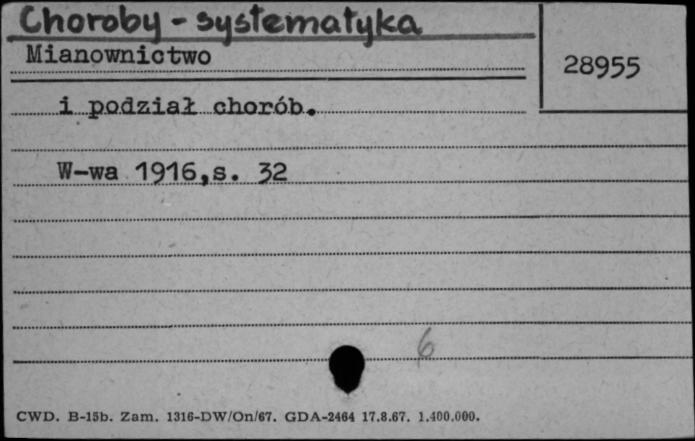 Choroby - systematyka
Mianownictwo
28955
i podział chorób.
W-wa 1916,s. 32
6
CWD. B-15b. Zam. 1316-DW/On/67. GDA-2464 17.8.67. 1.400.000.